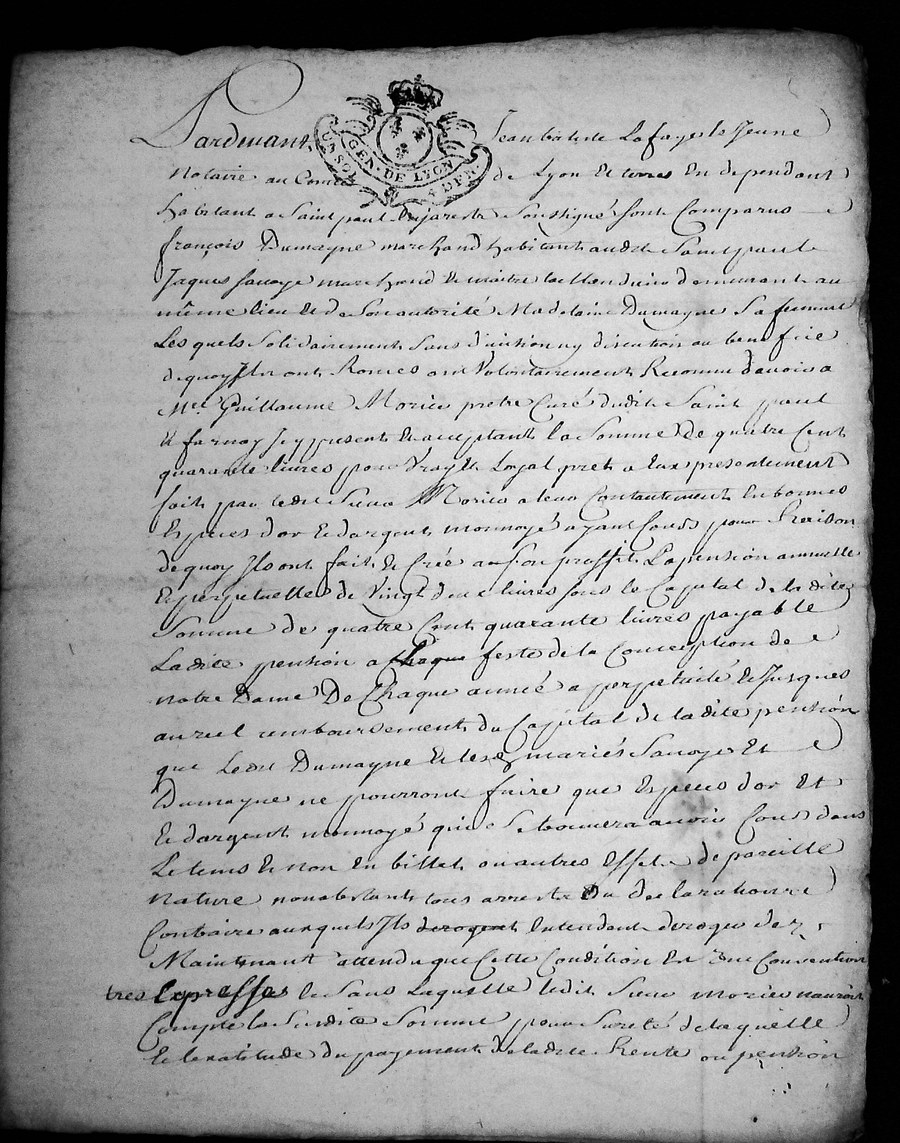 Pardevant Jean batiste Lafaye le Jeune
GEN. DE LYON
Notaire au Comté de Lyon Et terres En dependant
habitant a Saint paul En jareste Soussigné sont Comparus
françois Dumayne marchand habitant audit Saint paul
Jaques Savoye marchand Et maitre demeurant au
même lieu Et de Son autorité Madelaine Dumayne Sa femme
Lesquels Solidairement Sans division ny discution au benefice
dequoy Ils ont Renoncé ont Volontairement Reconnu d'avoir a
Mre Guillaume Morice pretre Curé dudit Saint paul
Et farnay Icy present Et acceptant la Somme de quatre Cent
quarante livres pour Vray Et Loyal pret a Eux presentement
fait par ledit Sieur Morice a leur Contantement En bonnes
Especes dor Et dargent monnoyé ayant Cours pour Raison
dequoy Ils ont fait Et Créé au Son proffit La pension annuelle
Et perpetuelle de Vingt deux livres sous le Capital de la dite
Somme de quatre Cent quarante livres payable
Ladite pension a Chaque feste de la Conception de
notre Dame De Chaque année a perpetuité Et Jusques
au reel remboursement du Capital de ladite pension
que Ledit Dumayne Et lesd mariés Savoye Et
Dumayne ne pourront faire que Especes dor Et
Et dargent monnoyé qui Se trouvera avoir Cours dans
Le tems Et non En billet ou autres Effets de pareille
Nature nonobstant tous arrests Ou declarations
Contraire auxquels Ils derogent Entendent deroger dez
Maintenant attendu que Cette Condition Est Une Convention
tres Expresse Et Sans Laquelle ledit Sieur Morice nauroit
Compté la Susdite Somme pour Sureté delaquelle
Et du payement deladite Rente ou pension